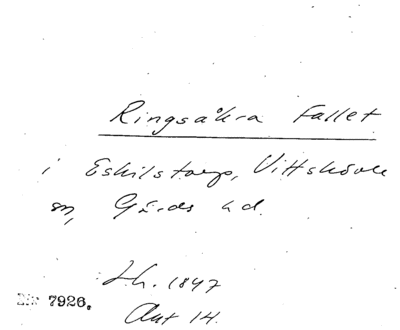 Ringsåkra Fallet
i Eskilstorp, Vittskövle
sn, Gärds hd.
Lh. 1847
7926.
Akt 14.